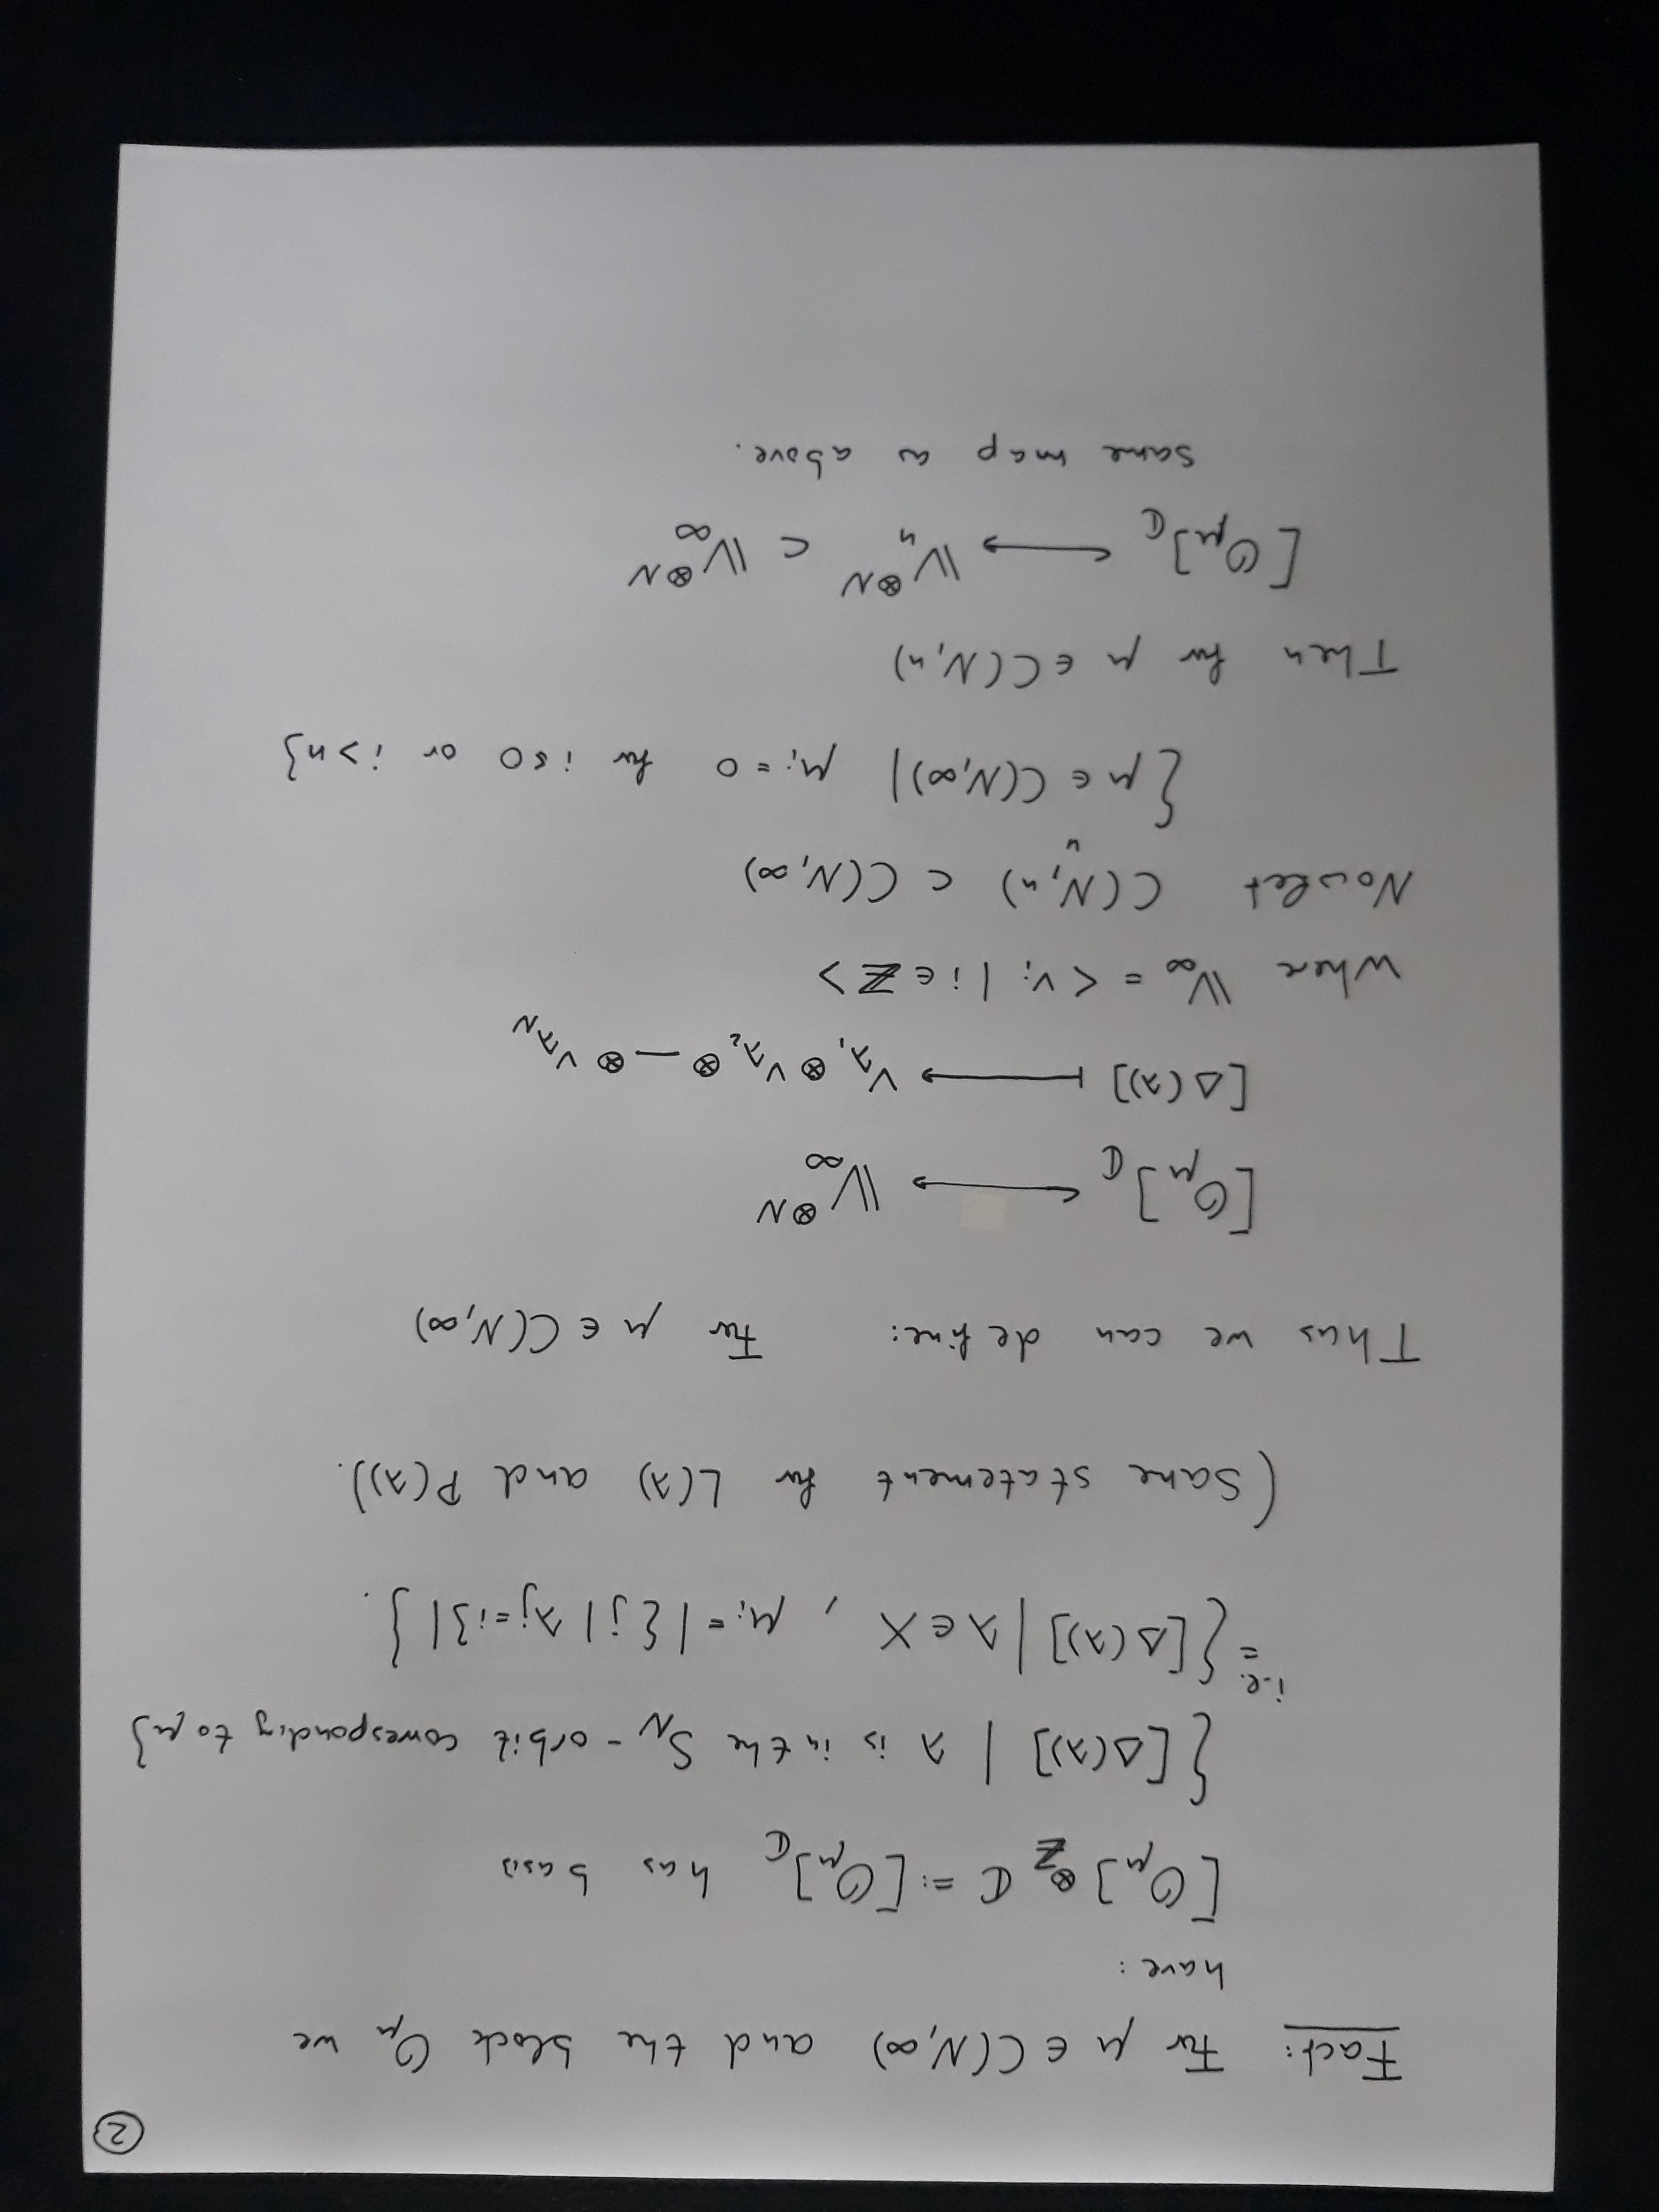 ②
Fact: For μ ∈ C(N,∞) and the block 𝒪_μ we
have:
[𝒪_μ] ⊗_ℤ ℂ =: [𝒪_μ]_ℂ has basis
{[Δ(λ)] | λ is in the S_N - orbit corresponding to μ}
i.e.
= {[Δ(λ)] | λ ∈ X , μ_i = |{j | λ_j = i}| }.
(Same statement for L(λ) and P(λ)).
Thus we can define: For μ ∈ C(N,∞)
[𝒪_μ]_ℂ ↪ 𝕍_∞^{⊗N}
[Δ(λ)] ⟼ v_{λ_1} ⊗ v_{λ_2} ⊗ — ⊗ v_{λ_N}
where 𝕍_∞ = < v_i | i ∈ ℤ >
Now let C(N,n) ⊂ C(N,∞)
"
{μ ∈ C(N,∞) | μ_i = 0 for i ≤ 0 or i > n}
Then for μ ∈ C(N,n)
[𝒪_μ]_ℂ ↪ 𝕍_n^{⊗N} ⊂ 𝕍_∞^{⊗N}
same map as above.